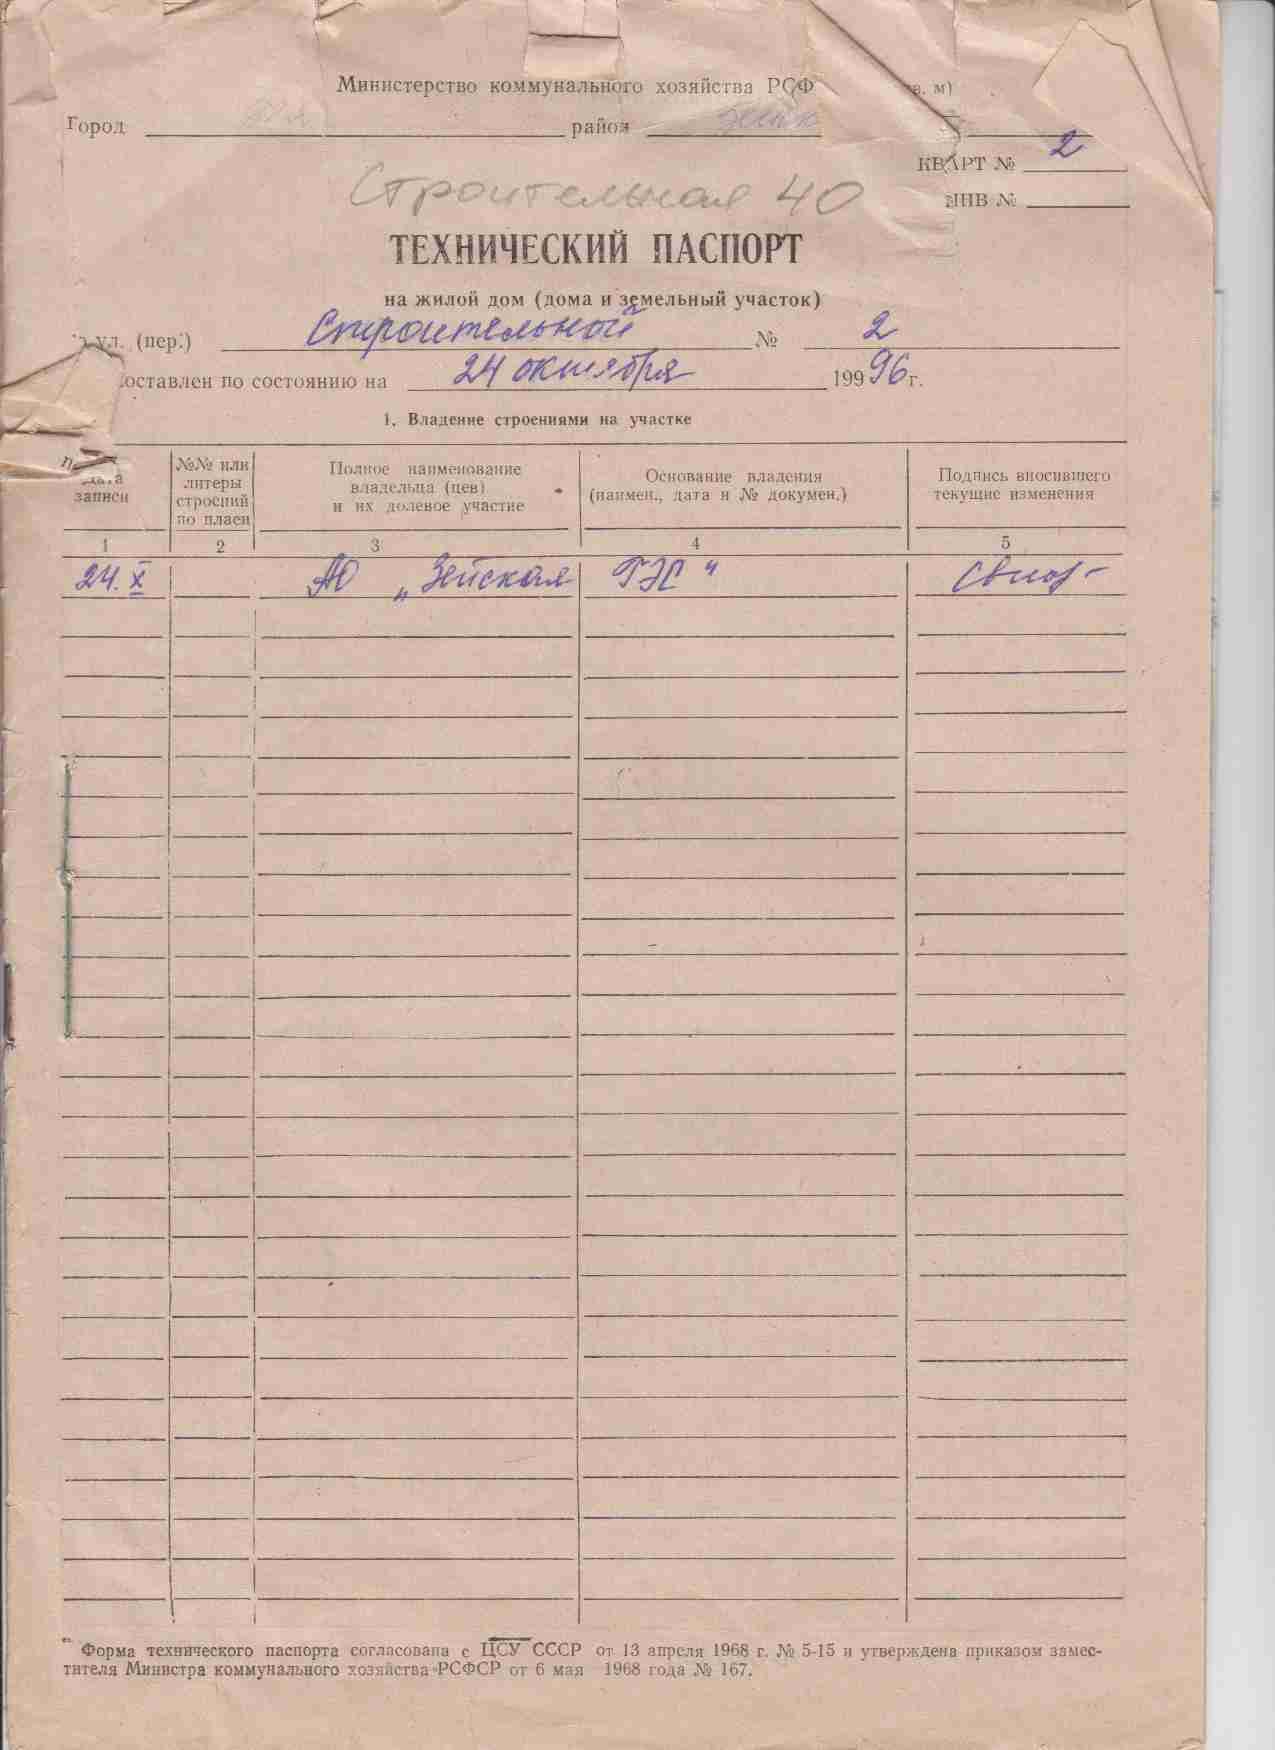 Министерство коммунального хозяйства РСФ в. м)
Город район
КВАРТ № 2
Строительная 40
ИНВ №
ТЕХНИЧЕСКИЙ ПАСПОРТ
на жилой дом (дома и земельный участок)
ул. (пер.) Строительной № 2
оставлен по состоянию на 24 октября 199 96 г.
1. Владение строениями на участке
Дата записи
№№ или литеры строений по плану
Полное наименование владельца (цев) и их долевое участие
Основание владения (наимен., дата и № докумен.)
Подпись вносившего текущие изменения
1 2 3 4 5
24. X АО „Зейская ГЭС"
Форма технического паспорта согласована с ЦСУ СССР от 13 апреля 1968 г. № 5-15 и утверждена приказом замес-
тителя Министра коммунального хозяйства РСФСР от 6 мая 1968 года № 167.